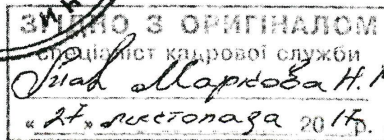 ЗГІДНО З ОРИГІНАЛОМ
спеціаліст кадрової служби
Маркова Н.
«27» листопада 2015р.